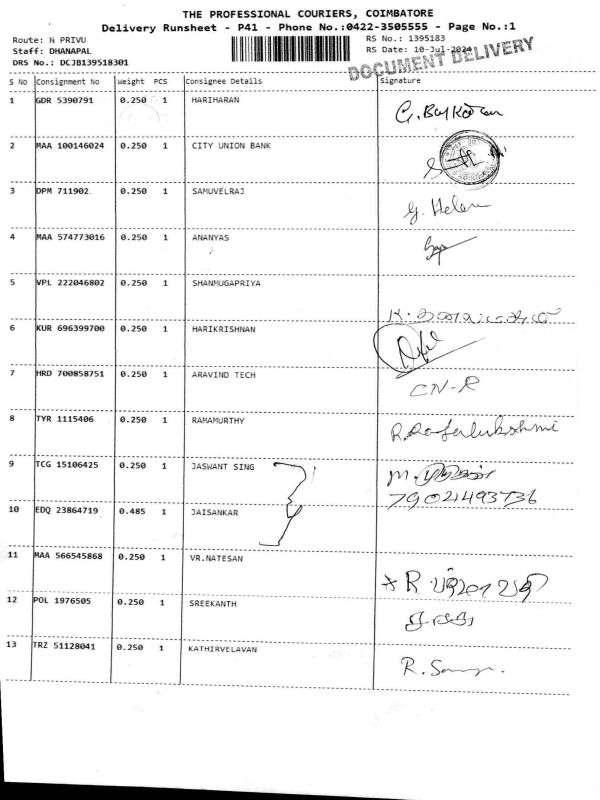 THE PROFESSIONAL COURIERS, COIMBATORE
Delivery Runsheet - P41 - Phone No.:0422-3505555 - Page No.:1
Route: N PRIVU
RS No.: 1395183
Staff: DHANAPAL
RS Date: 10-Jul-2024
DRS No.: DCJB139518301
DOCUMENT DELIVERY
S No Consignment No Weight PCS Consignee Details Signature
1 GDR 5390791 0.250 1 HARIHARAN
2 MAA 100146024 0.250 1 CITY UNION BANK
3 DPM 711902 0.250 1 SAMUVELRAJ G. Helen
4 MAA 574773016 0.250 1 ANANYAS
5 VPL 222046802 0.250 1 SHANMUGAPRIYA
6 KUR 696399700 0.250 1 HARIKRISHNAN
7 HRD 700858751 0.250 1 ARAVIND TECH CN-R
8 TYR 1115406 0.250 1 RAMAMURTHY R.Rajalukshmi
9 TCG 15106425 0.250 1 JASWANT SING M.
7902493736
10 EDQ 23864719 0.485 1 JAISANKAR
11 MAA 566545868 0.250 1 VR.NATESAN R
12 POL 1976505 0.250 1 SREEKANTH
13 TRZ 51128041 0.250 1 KATHIRVELAVAN R.